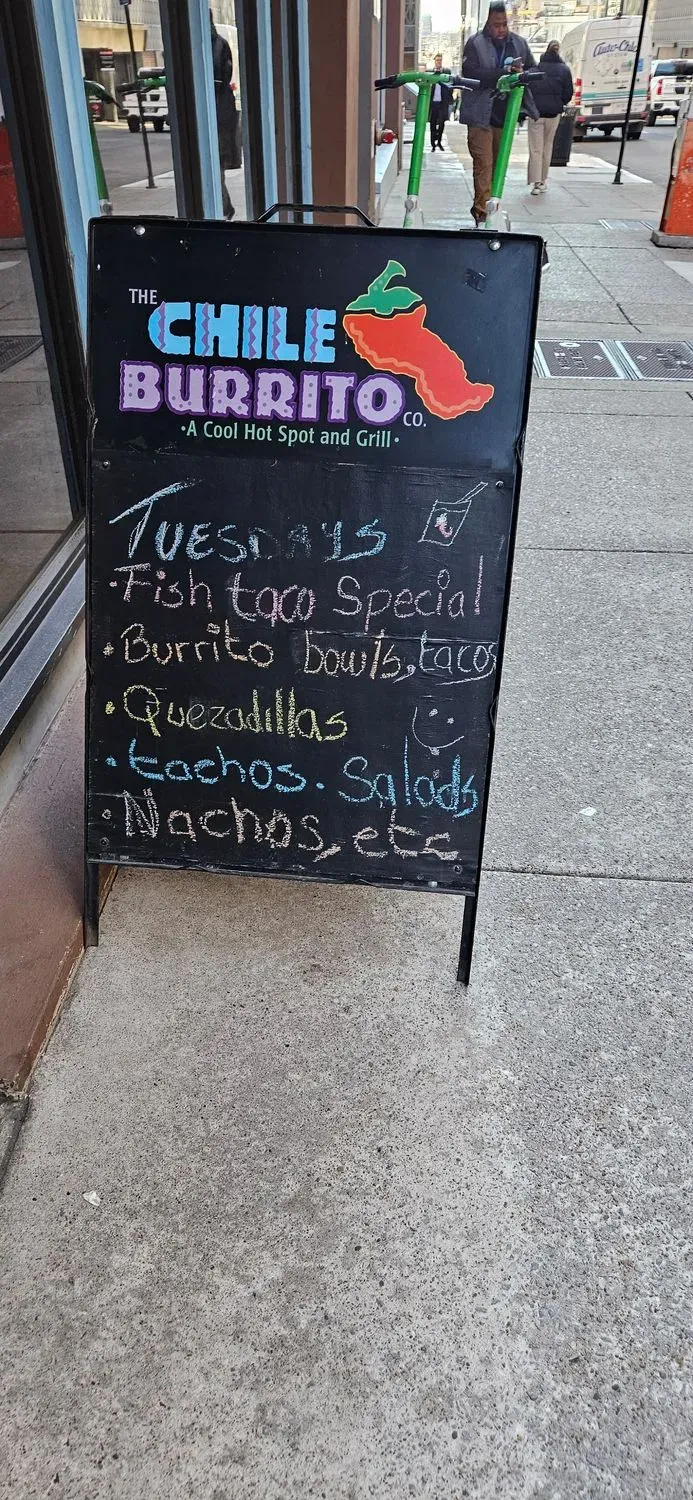 THE
CHILE
BURRITO CO.
•A Cool Hot Spot and Grill•
TUESDAYS
•Fish taco Special
•Burrito bowls, tacos
•Quezadillas
•tachos. Salads
•Nachos, etc